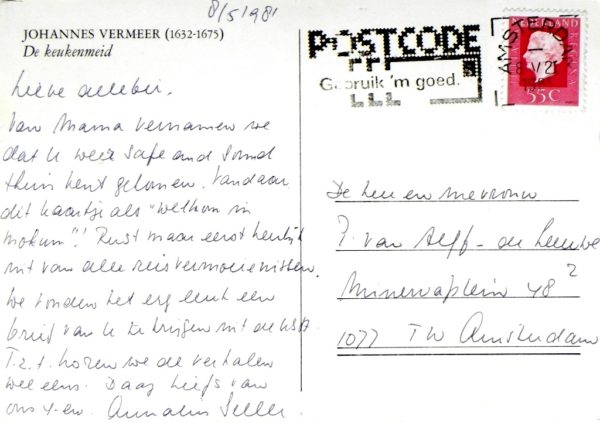 8/5/'981
JOHANNES VERMEER (1632-1675)
De keukenmeid
POSTCODE
Gebruik 'm goed.
NEDERLAND
55C
Lieve allebei.
Van Mama vernamen we
dat U weer safe and sound
thuis bent gekomen. Vandaar
dit kaartje als "welkom in
mokum"! Rust maar eerst heerlijk
uit van alle reisvermoeienissen.
We vonden het erg leuk een
brief van U te krijgen uit de USA
T.z.t. horen we de verhalen
wel eens. Daag liefs van
ons 4-en.
De heer en mevrouw
P. van Alff - de Leeuwe
Minervaplein 48 2
1077 TW Amsterdam